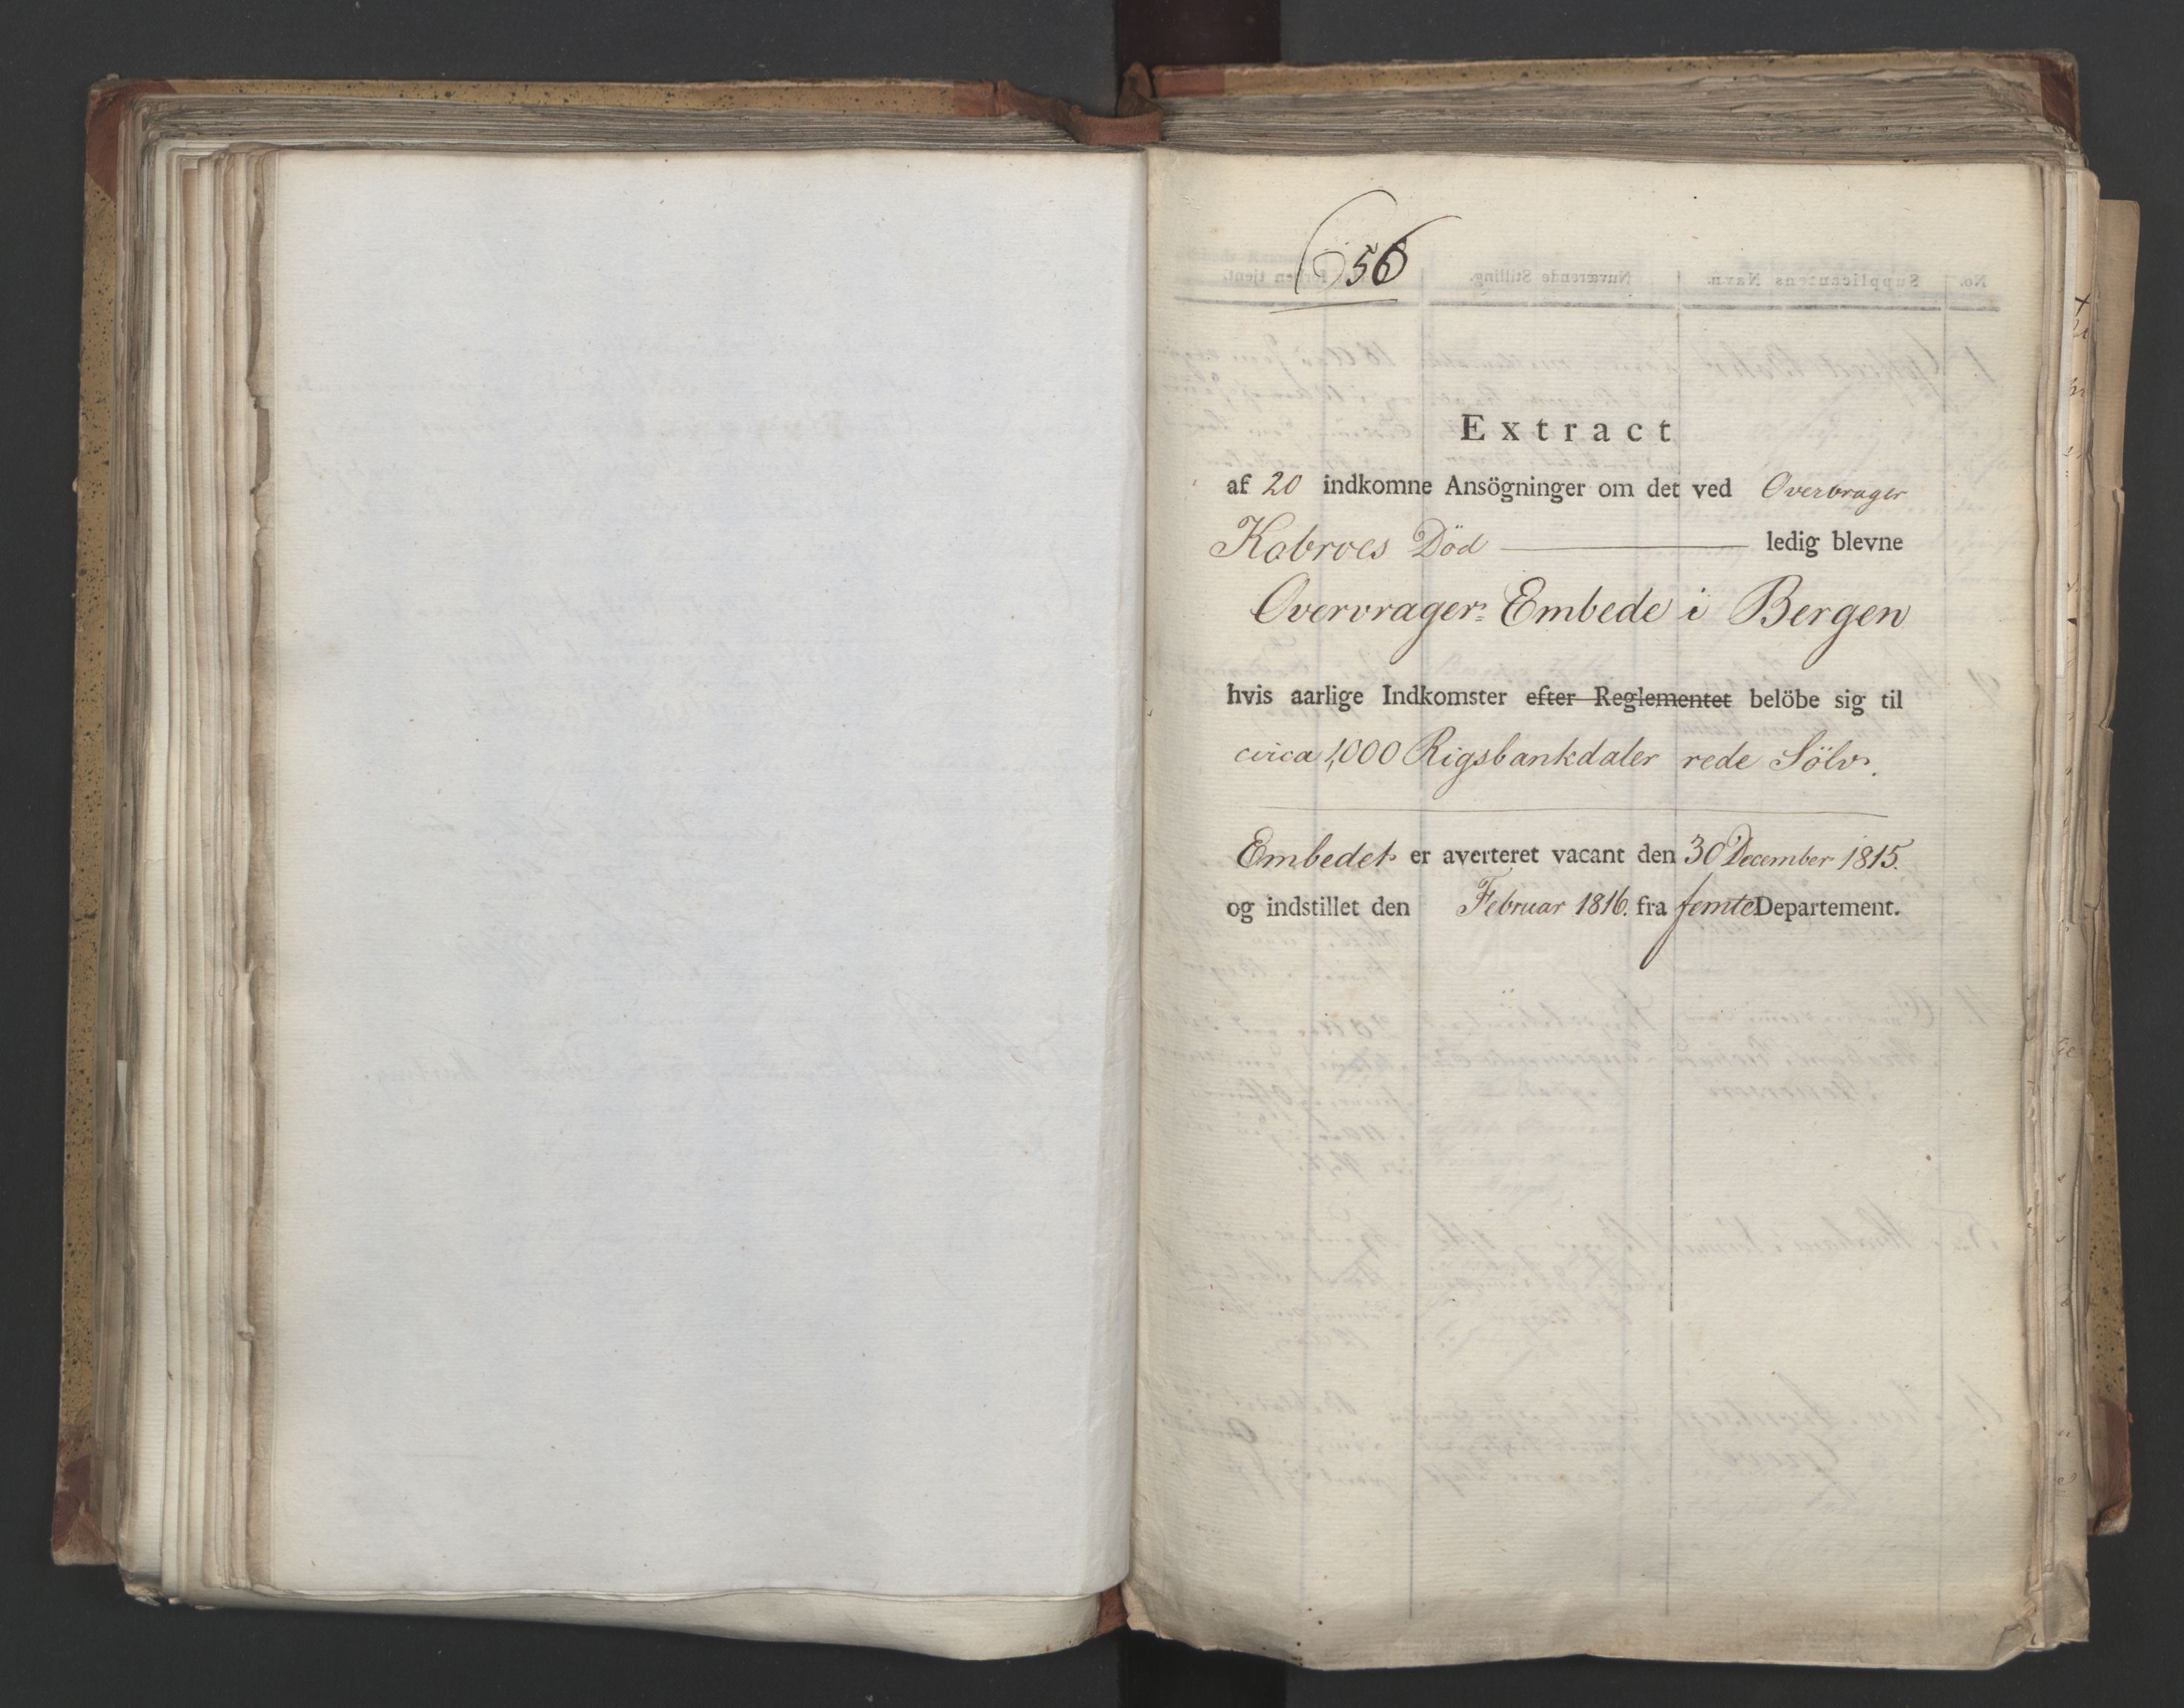 56
Extract
af 20 indkomne Ansögninger om det ved Overvrager
Kobroes Död ledig blevne
Overvrager- Embede i Bergen
hvis aarlige Indkomster efter Reglementet belöbe sig til
circa 1,000 Rigsbankdaler rede Sölv.
Embedet er averteret vacant den 30 December 1815.
og indstillet den Februar 1816. fra femte Departement.